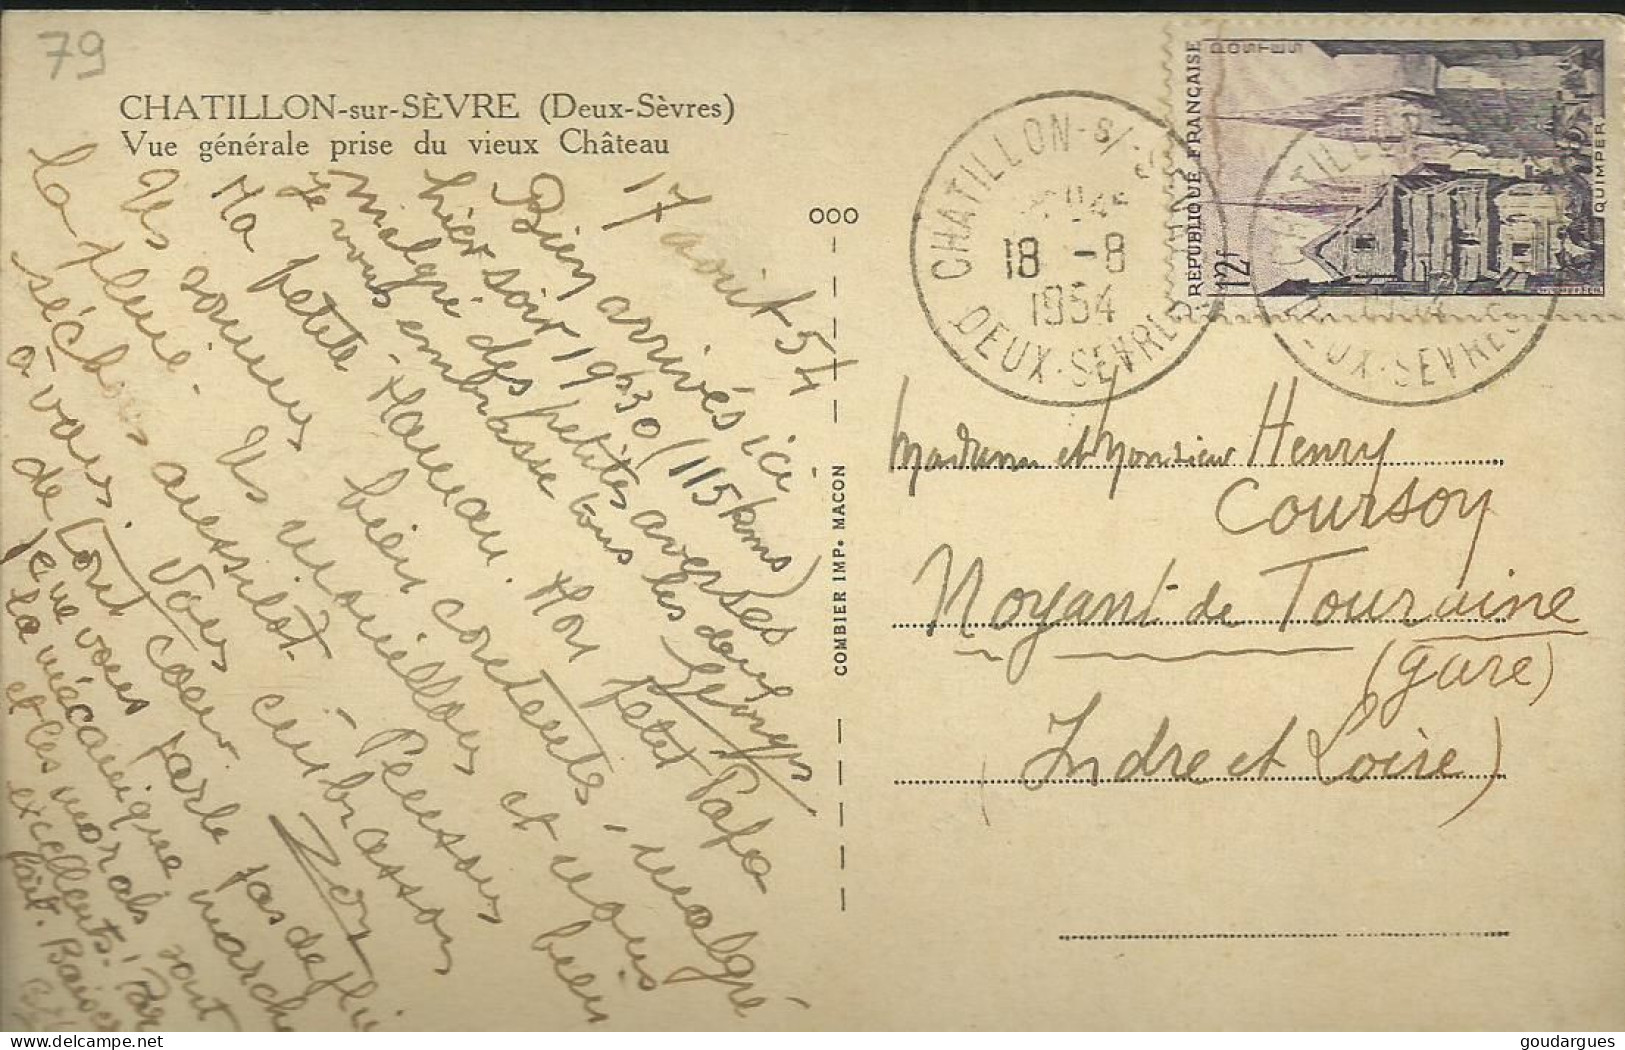 79
CHATILLON-sur-SÈVRE (Deux-Sèvres)
Vue générale prise du vieux Château
17 août 54
Bien arrivés ici
hier soir 19h30 (115 kms)
malgré des petites averses
Je vous embrasse tous les deux
Ma petite Maman. Mon petit Papa
Ns sommes bien contents, malgré
la pluie. Ns mouillons et nous
séchons aussitôt. - Pensons bien
à vous. Vous embrassons
de tout coeur.
Je ne vous parle pas de
la mécanique marche
et les morals sont
excellents! Par
Baisers
OOO
COMBIER IMP. MACON
CHATILLON-s/-SÈVRE
18 -8
1954
DEUX-SEVRES
POSTES
REPUBLIQUE FRANÇAISE
12f
QUIMPER
Madame et Monsieur Henry
COURSOY
Noyant de Touraine
(gare)
(Indre et Loire)
goudargues